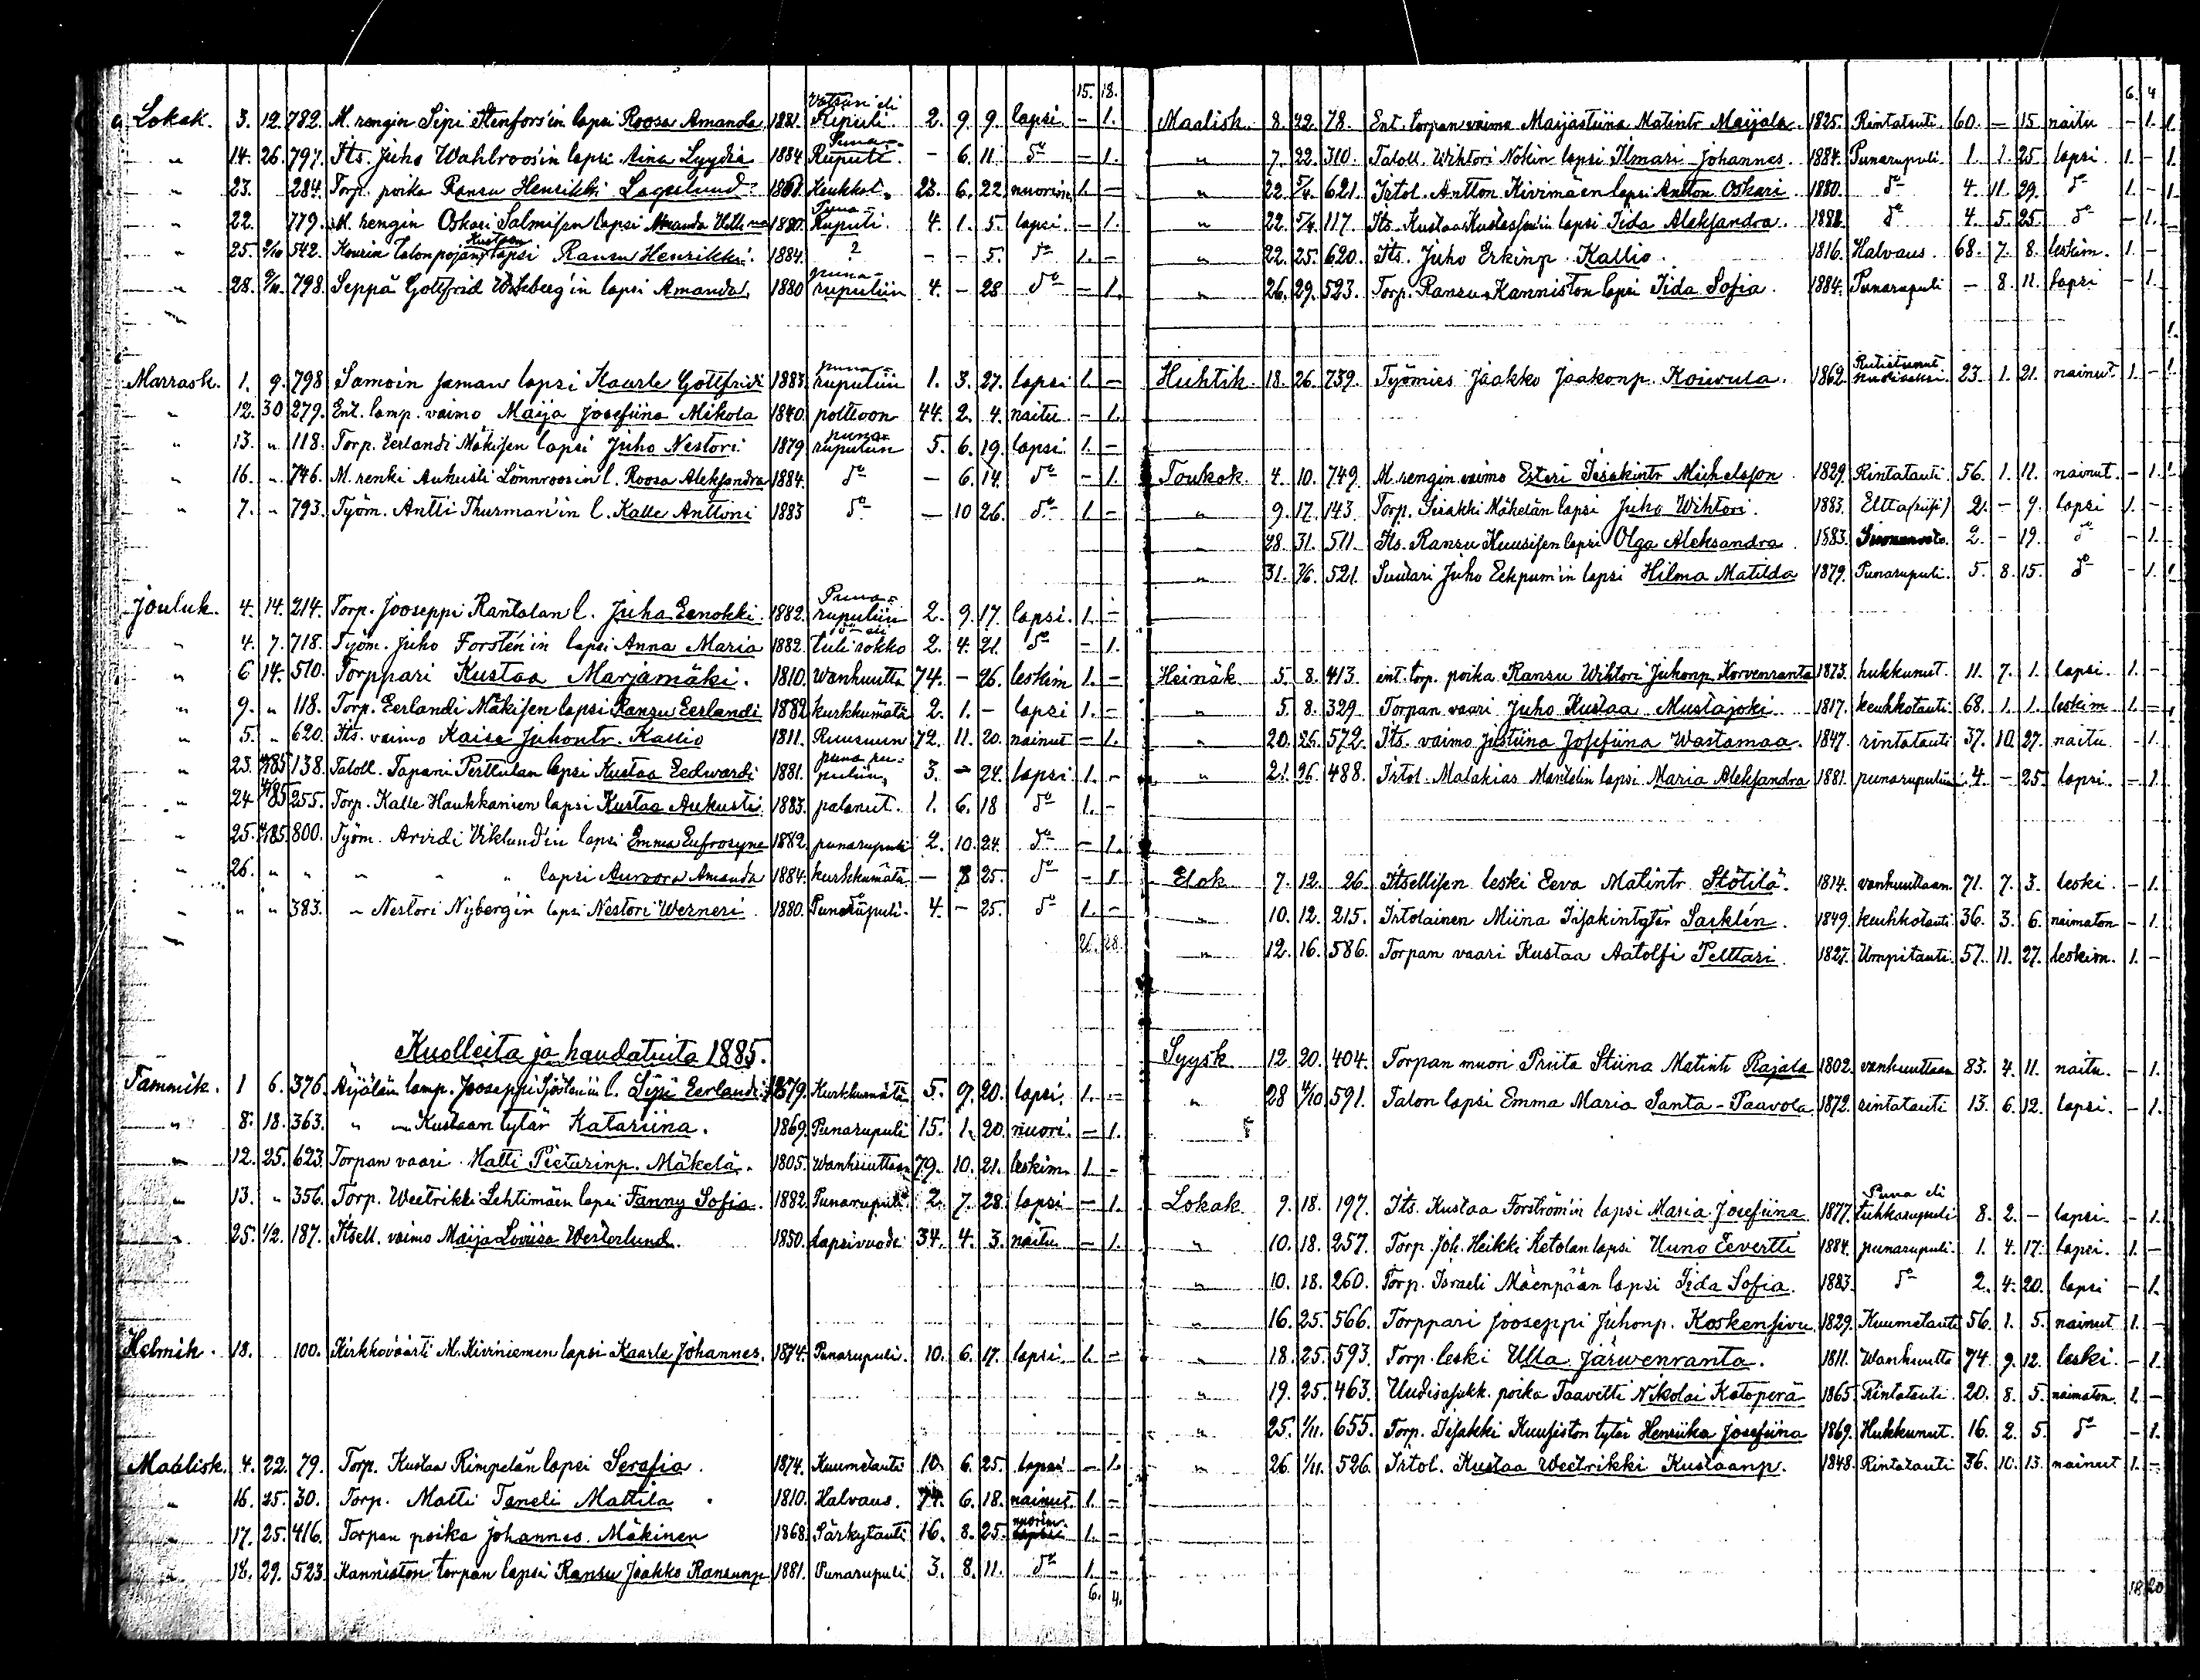 15. 18.
Lokak. 3. 12. 782. M. rengin Sipi Stenfors'in lapsi Roosa Amanda 1881. Vatsuri eli Ripuli. 2. 9. 9. lapsi - 1.
" 14. 26. 797. Its. Juho Wahlroos'in lapsi Aina Lyydia 1884. Puna-Rupuli. - 6. 11. do - 1.
" 23. 284. Torp. poika Ransu Henrikki Lagerlund 1861. Keuhkot. 23. 6. 22. nuorim. 1. -
" 22. 779. M. rengin Oskari Salmisen lapsi Amanda 1880. Puna-Rupuli 4. 1. 5. lapsi. - 1.
" 25. 2/10 542. Kourin talonpojan Kustaan lapsi Ransu Henrikki. 1884. ? - - 5. do 1. -
" 28. 798. Seppä Gottfrid lapsi Amanda. 1880 puna-rupuliin 4. - 28 do - 1.
Marrask. 1. 9. 798 Samoin saman lapsi Kaarle Gottfridi 1883. puna-rupuliin 1. 3. 27. lapsi 1. -
" 12. 30 279. Ent. lamp. vaimo Maija Josefiina Mikola 1840. polttoon 44. 2. 4. naitu - 1.
" 13. " 118. Torp. Eerlandi Mäkisen lapsi Juho Nestori. 1879 puna-rupuliin 5. 6. 19. lapsi. 1. -
" 16. " 746. M. renki Aukusti Lönnroosin l. Roosa Aleksandra 1884. do - 6. 14. do - 1.
" 7. " 793. Työm. Antti Thurman'in l. Kalle Anttoni 1883 do - 10 26. do 1. -
Jouluk. 4. 14. 214. Torp. Jooseppi Rantalan l. Juha Eenokki. 1882. Puna-rupuliin 2. 9. 17. lapsi. 1. -
" 4. 7. 718. Työm. Juho Forstén'in lapsi Anna Maria 1882. tulirokko 2. 4. 21. do - 1.
" 6 14. 510. Torppari Kustaa Marjamäki. 1810. Wanhuutta 74. - 26. leskim 1. -
" 9. " 118. Torp. Eerlandi Mäkisen lapsi Ransu Eerlandi 1882 kurkkumätä 2. 1. - lapsi 1. -
" 5. " 620. Its. vaimo Kaisa Juhontr. Kallio 1811. Ruusuun 72. 11. 20. nainut - 1.
" 23. 138. Taloll. Tapani Perttulan lapsi Kustaa Eedwardi 1881. puna rupuliin, 3. - 24. lapsi 1. -
" 24 255. Torp. Kalle Haukkanien lapsi Kustaa Aukusti 1883. palanut. 1. 6. 18 do 1. -
" 25. 800. Työm. Arvidi Viklund'in lapsi Emma Eufrosyne 1882. punarupuli 2. 10. 24. do - 1.
" 26. " " " " lapsi Aurora Amanda 1884. kurkkumätä - 3 25. do - 1
" " " 383. " Nestori Nybergin lapsi Nestori Werneri 1880. Punarupuli. 4. - 25. do 1. -
26. 28.
Kuolleita ja haudatuita 1885.
Tammik. 1 6. 376. Äijälän lamp. Jooseppi Sjöstenin l. Sipi Eerlandi 1879. Kurkkumätä 5. 9. 20. lapsi. 1. -
" 8. 18. 363. " " Kustaan tytär Katariina. 1869. Punarupuli 15. 1. 20. nuori. - 1.
" 12. 25. 623. Torpan vaari Matti Pietarinp. Mäkelä. 1805. Wanhuuttaan 79. 10. 21. leskim. 1. -
" 13. " 356. Torp. Weetrikki Lehtimäen lapsi Fanny Sofia. 1882. Punarupuli. 2. 7. 28. lapsi - 1.
" 25. 1/2. 187. Itsell. vaimo Maija Loviisa Westerlund. 1850. Lapsivuode. 34. 4. 3. naitu - 1.
Helmik. 18. 100. Kirkkoväärti M. Kiviniemen lapsi Kaarle Johannes. 1874. Punarupuli. 10. 6. 17. lapsi. 1. -
Maalisk. 4. 22. 79. Torp. Kustaa Rimpelän lapsi Serafia. 1874. Kuumetauti 10. 6. 25. lapsi - 1.
" 16. 25. 30. Torp. Matti Taneli Mattila 1810. Halvaus. 74. 6. 18. nainut. 1. -
" 17. 25. 416. Torpan poika Johannes Mäkinen 1868. Särkytauti 16. 8. 25. nuorim. 1. -
" 18. 29. 523. Kanniston torpan lapsi Ransu Jaakko Ransunp 1881. Punarupuli. 3. 8. 11. do 1. -
6. 4.
6. 4
Maalisk. 8. 22. 78. Ent. torpan vaimo Marjastiina Matintr Maijala. 1825. Rintatauti. 60. - 15. naitu - 1.
" 7. 22. 310. Taloll. Wihtori Nokin lapsi Ilmari Johannes. 1884. Punarupuli. 1. 1. 25. lapsi. 1. -
" 22. 5/4. 621. Irtol. Antton Kivimäen lapsi Antton Oskari. 1880. do 4. 11. 29. do 1. -
" 22. 5/4. 117. Its. Kustaa Kustaassonin lapsi Iida Aleksandra. 1881. do 4. 5. 25. do - 1.
" 22. 25. 620. Its. Juho Erkinp. Kallio. 1816. Halvaus. 68. 7. 8. leskim. 1. -
" 26. 29. 523. Torp. Ransu Kanniston lapsi Iida Sofia. 1884. Punarupuli - 8. 11. lapsi - 1.
Huhtik. 18. 26. 739. Työmies Jaakko Jaakonp. Koivula. 1862. 23. 1. 21. nainut. 1. -
Toukok. 4. 10. 749. M. rengin vaimo Esteri Iisakintr Mickelsson 1829. Rintatauti. 56. 1. 11. nainut. - 1.
" 9. 17. 143. Torp. Iisakki Mäkelän lapsi Juho Wihtori. 1883. Eltta (riisi) 2. - 9. lapsi 1. -
" 28. 31. 511. Its. Ransu Kuusisen lapsi Olga Aleksandra. 1883. 2. - 19. do - 1.
" 31. 7/6. 521. Suutari Juho Eekpum'in lapsi Hilma Matilda 1879. Punarupuli. 5. 8. 15. do - 1.
Heinäk. 5. 8. 413. ent. torp. poika Ransu Wihtori Juhonp. Korvenranta 1873. hukkunut. 11. 7. 1. lapsi. 1. -
" 5. 8. 329 Torpan vaari Juho Kustaa Mustajoki. 1817. keuhkotauti. 68. 1. 1. leskim. 1. -
" 20. 26. 572. Its. vaimo Justiina Josefiina Wastamaa. 1847. rintatauti 37. 10. 27. naitu - 1.
" 21. 26. 488. Irtol. Malakias Mäntälin lapsi Maria Aleksandra 1881. punarupuliin 4. - 25. lapsi. - 1.
Elok 7. 12. 26. Itsellisen leski Eeva Matintr. Stötilä. 1814. vanhuuttaan. 71. 7. 3. leski. - 1.
" 10. 12. 215. Irtolainen Miina Iisakintytär Sarklén. 1849. keuhkotauti 36. 3. 6. naimaton - 1.
" 12. 16. 586. Torpan vaari Kustaa Aatolfi Pelttari. 1827. Umpitauti. 57. 11. 27. leskim. 1. -
Syysk 12. 20. 404. Torpan muori Priita Stiina Matintr Rajala 1802. vanhuuttaan 83. 4. 11. naitu. - 1.
" 28 4/10 591. Talon lapsi Emma Maria Santa-Paavola 1872. rintatauti 13. 6. 12. lapsi. - 1.
Lokak 9. 18. 197. Its. Kustaa Forström'in lapsi Maria Josefiina 1877. Puna eli tuhkarupuli 8. 2. - lapsi. - 1.
" 10. 18. 257. Torp. Joh. Heikki Ketolan lapsi Uuno Eevertti 1884. punarupuli. 1. 4. 17. lapsi. 1. -
" 10. 18. 260. Torp. Israeli Mäenpään lapsi Iida Sofia. 1883. do 2. 4. 20. lapsi - 1.
" 16. 25. 566. Torppari Jooseppi Juhonp. Koskensivu 1829. Kuumetauti 56. 1. 5. nainut 1. -
" 18. 25. 593. Torp. leski Ulla Järwenranta. 1811. Wanhuutta 74. 9. 12. leski. - 1.
" 19. 25. 463. Uudisasukk. poika Taavetti Nikolai Katoperä 1865. Rintatauti. 20. 8. 5. naimaton. 1. -
" 25. 1/11. 655. Torp. Iisakki Kuusiston tytär Henriika Josefiina 1869. Hukkunut. 16. 2. 5. do - 1.
" 26. 1/11. 526. Irtol. Kustaa Weetrikki Kustaanp. 1848. Rintatauti 36. 10. 13. nainut 1. -
18. 20